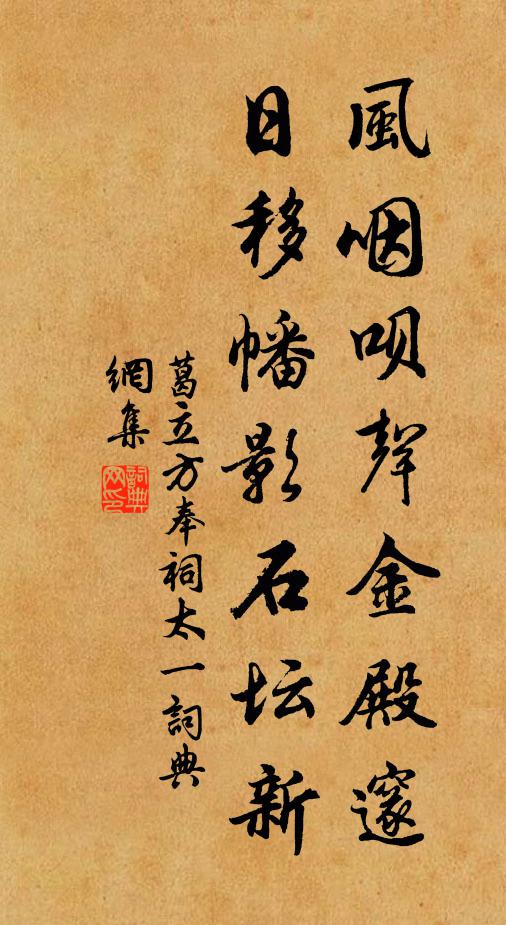 風咽唄聲金殿邃
日移幡影石坛新
葛立方奉祠太一詞典
網集
詞典網印